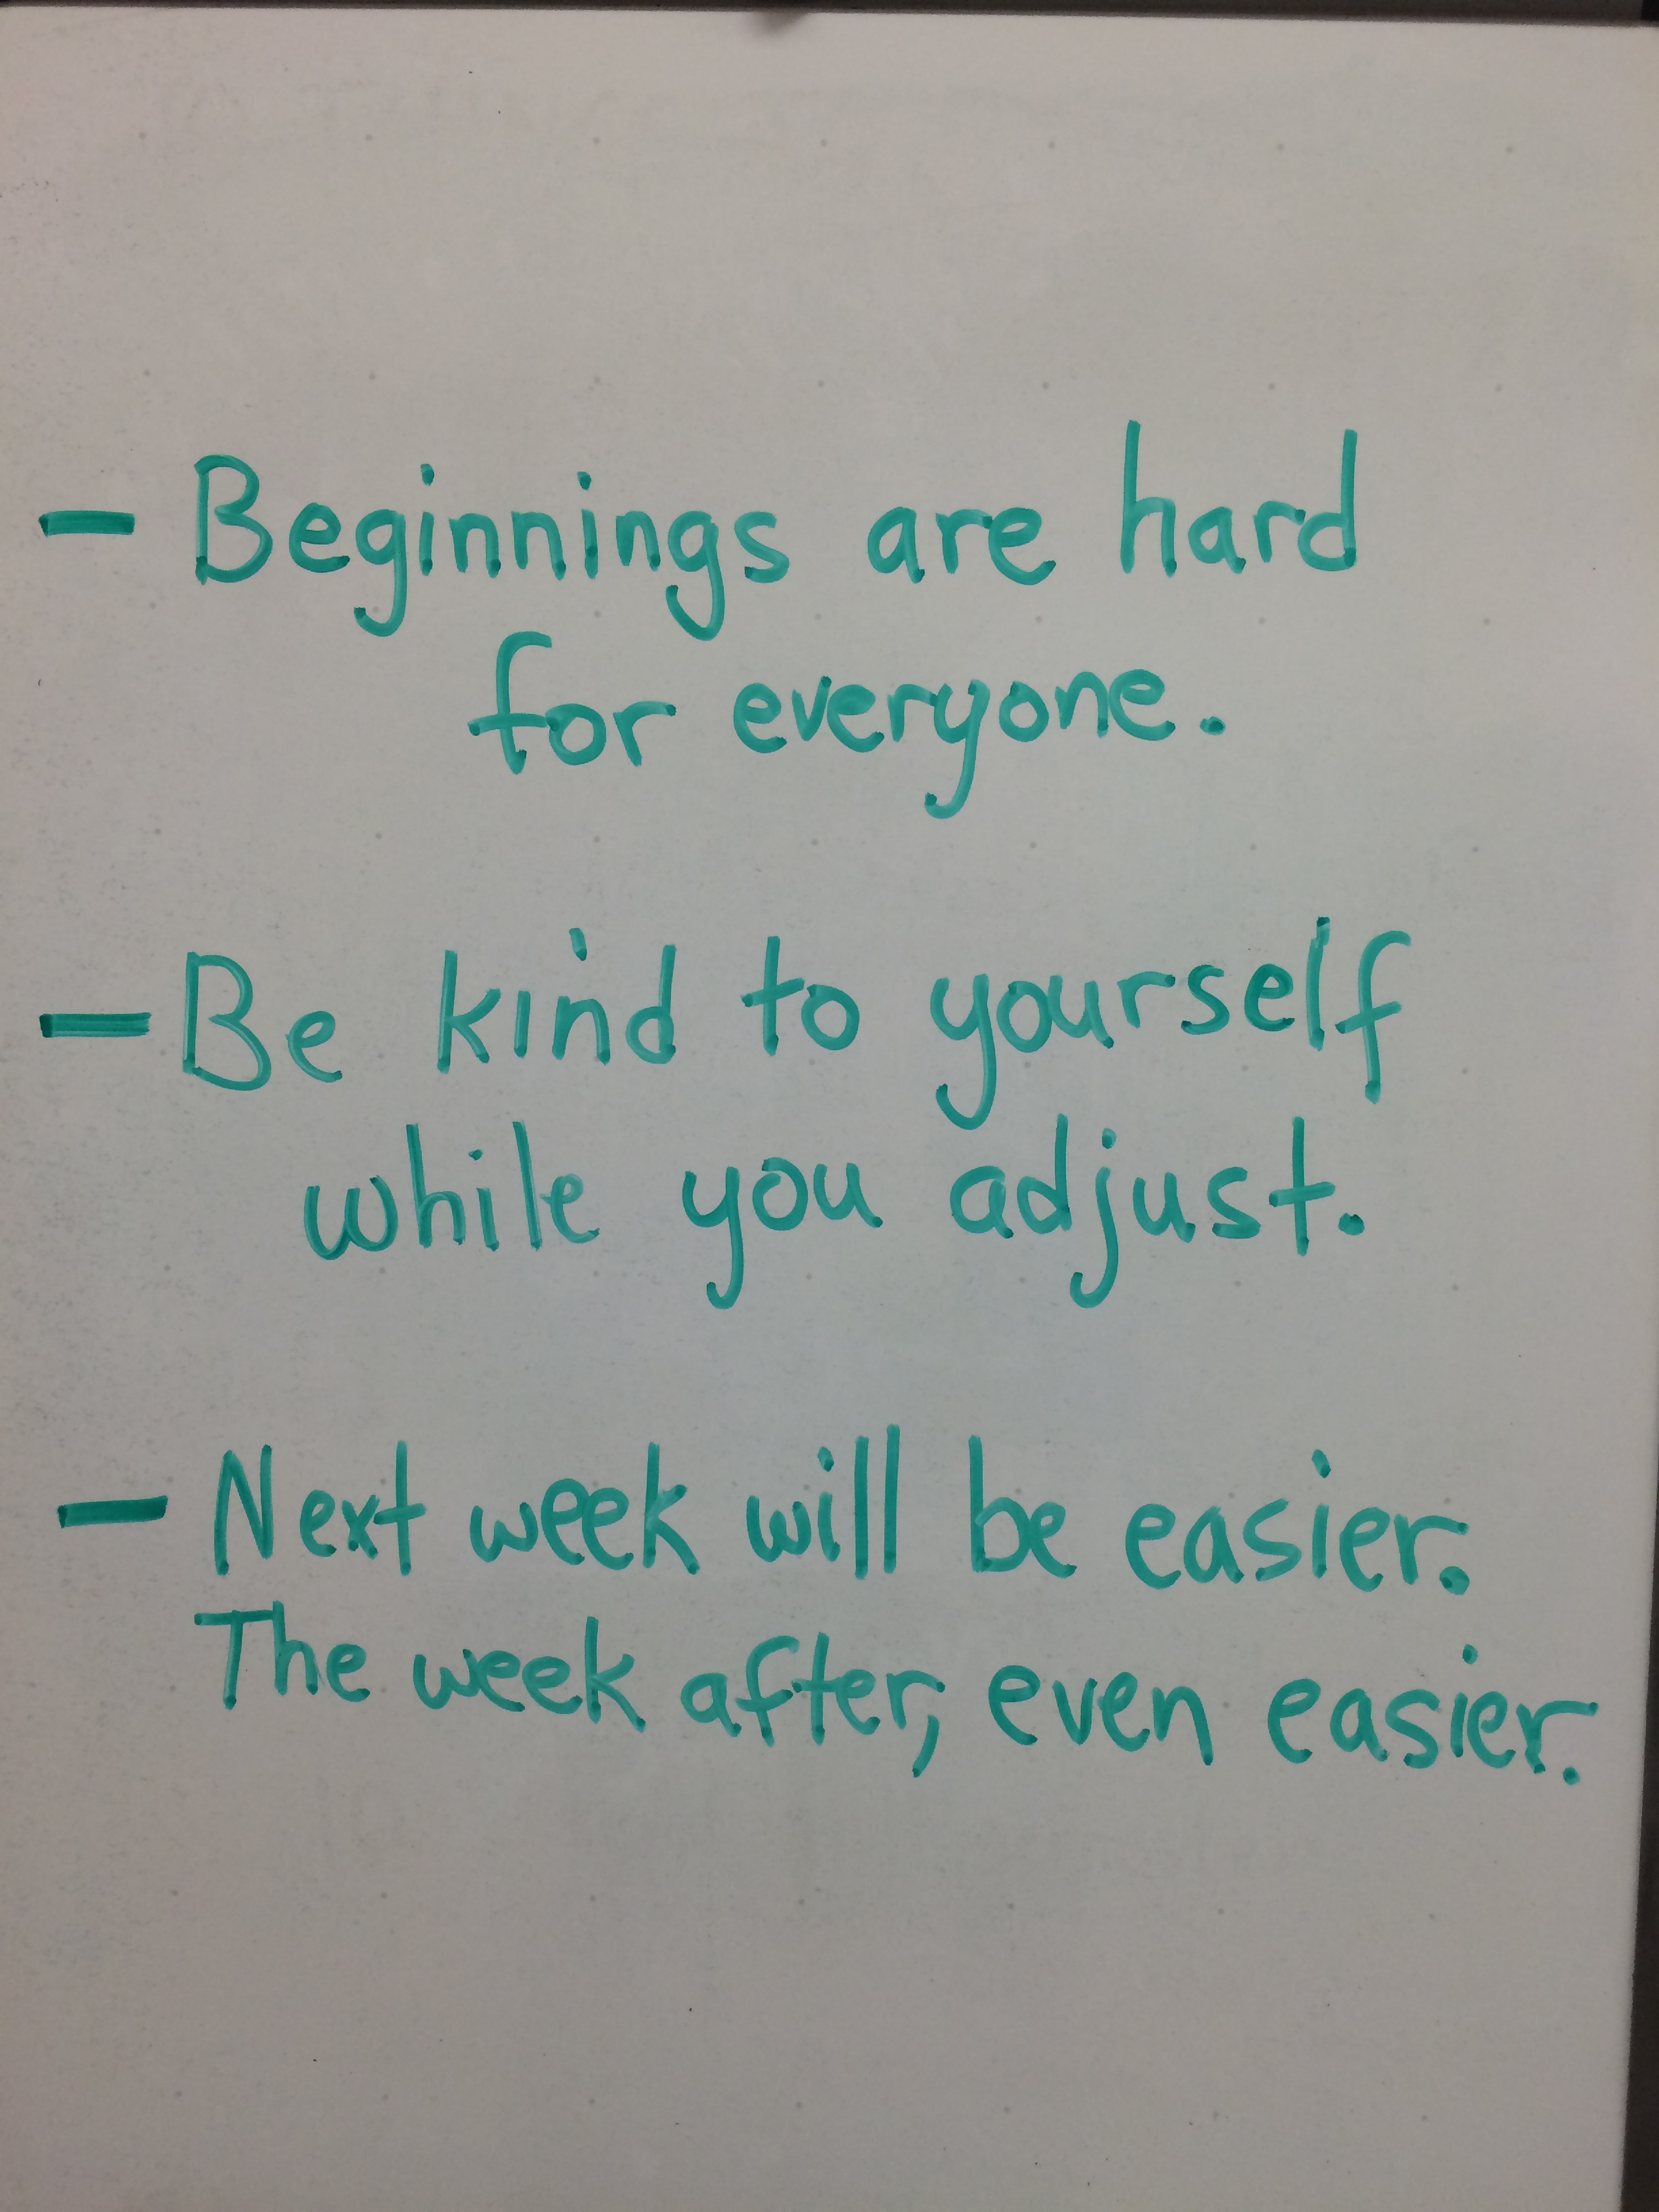 - Beginnings are hard
for everyone.
- Be kind to yourself
while you adjust.
- Next week will be easier.
The week after, even easier.